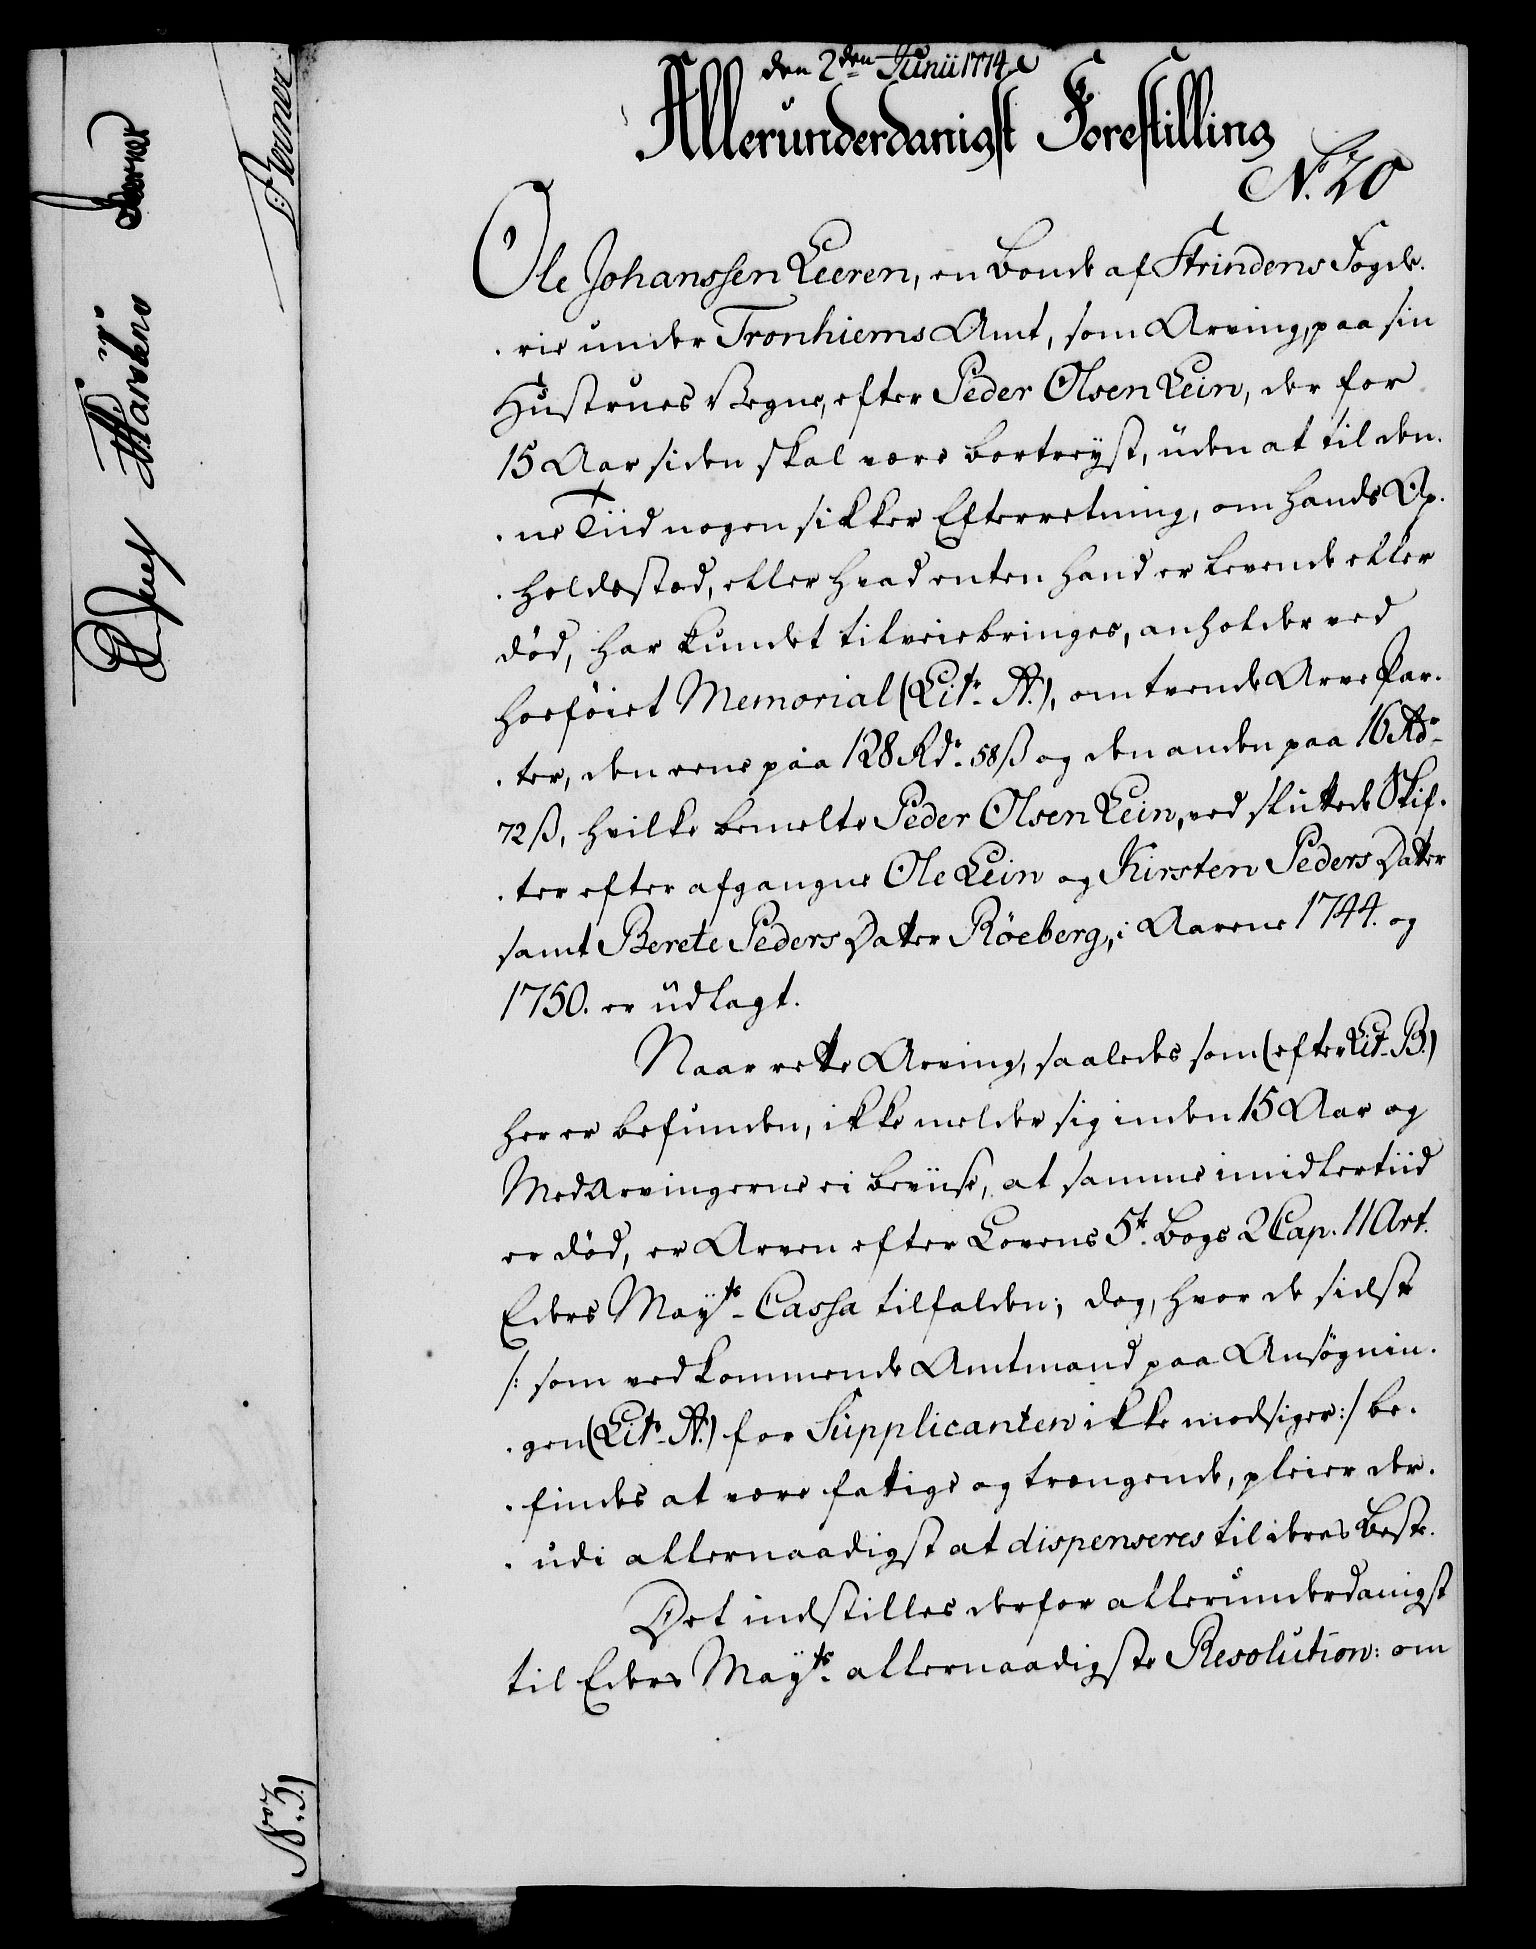 den 2den Junii 1774
Allerunderdanigst Forestilling
No. 20
Ole Johanssen Leeren, en Bonde af Strindens Fogde-
-rie under Tronhiems Amt, som Arving, paa sin
Hustrues Vegne, efter Peder Olsen Lein, der for
15 Aar siden skal være bortreyst, uden at til den-
-ne Tiid nogen sikker Efterretning, om hands Op-
-holdsstæd, eller hvad enten hand er levende eller
død, har kundet tilveiebringes, anholder ved
hosføiet Memorial (Litr. A.), om tvende Arve Par-
-ter, den eene paa 128 Rdr. 58 ß og den anden paa 16 Rdr.
72 ß, hvilke bemelte Peder Olsen Lein, ved sluttede Skif-
-ter efter afgangne Ole Lein og Kirsten Peders Datter
samt Berete Peders Datter Röeberg, i Aarene 1744. og
1750. er udlagt.
Naar rette Arving, saaledes som (efter Lit. B.)
her er befunden, ikke melder sig inden 15 Aar og
MedArvingerne ei beviise, at samme imidlertiid
er død, er Arven efter Lovens 5t. Bogs 2 Cap. 11 Art.
Eders Mayts. Cassa tilfalden; dog, hvor de sidste
/: som vedkommende Amtmand paa Ansøgnin-
-gen (Litr. A.) for Supplicanten ikke modsiger :/ be-
-findes at være fattige og trængende, pleier der-
-udi allernaadigst at dispenseres til deres Beste.
Det indstilles derfor allerunderdanigst
til Eders Mayts. allernaadigste Resolution: om